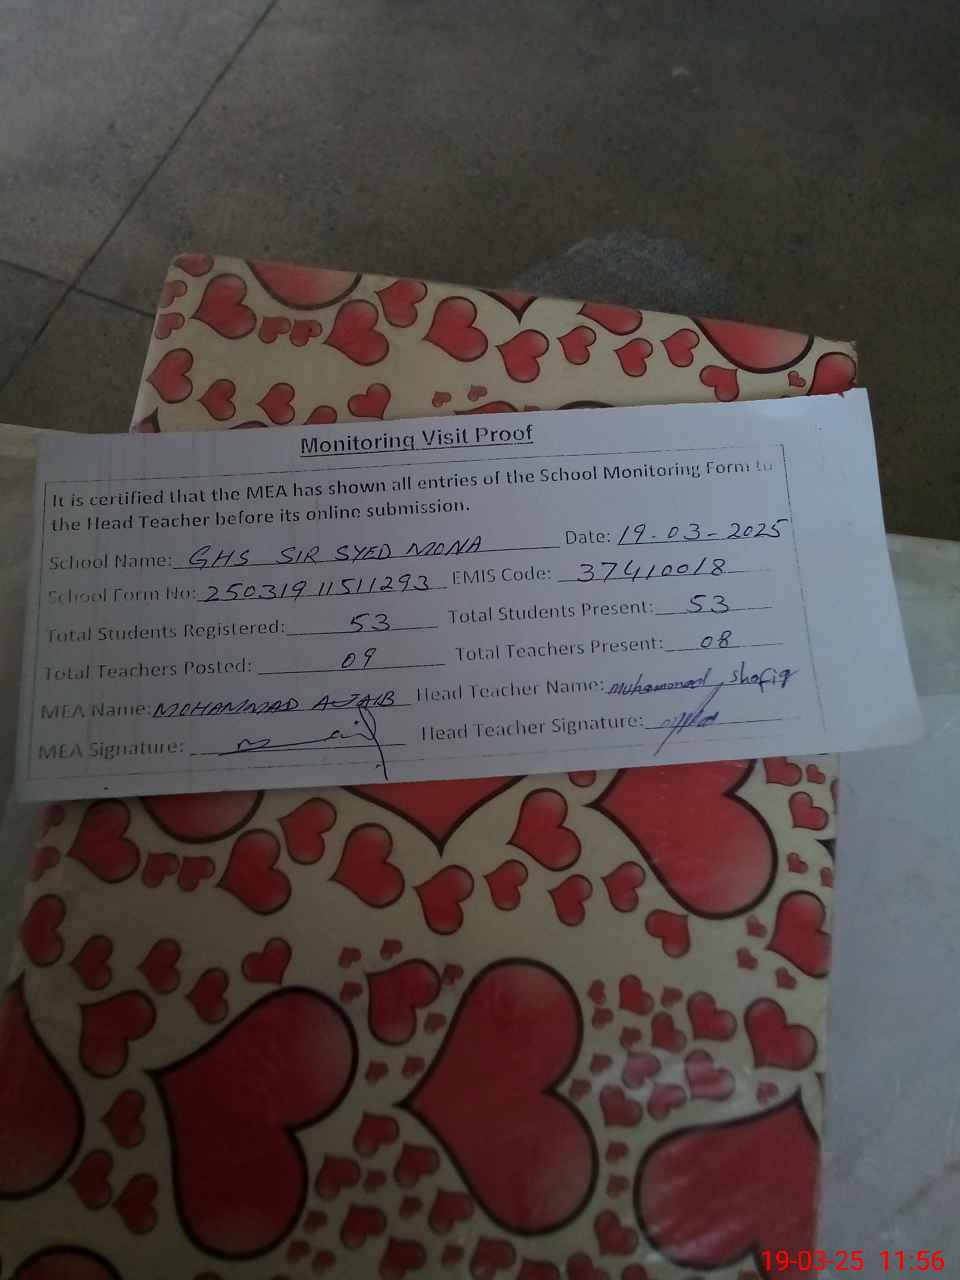 Monitoring Visit Proof
It is certified that the MEA has shown all entries of the School Monitoring Form to
the Head Teacher before its online submission.
School Name: GHS SIR SYED MONA Date: 19-03-2025
School Form No: 25031911511293 EMIS Code: 37410018
Total Students Registered: 53 Total Students Present: 53
Total Teachers Posted: 09 Total Teachers Present: 08
MEA Name: MOHAMMAD AJAIB Head Teacher Name: Muhammad Shafiq
MEA Signature: Head Teacher Signature:
19-03-25 11:56